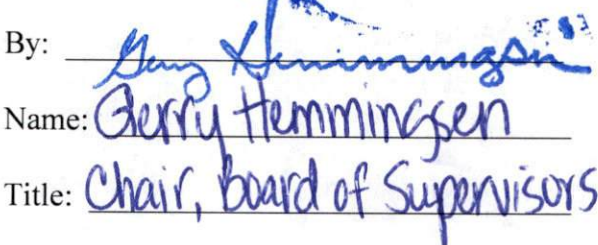 By: Gerry Hemmingsen
Name: Gerry Hemmingsen
Title: Chair, Board of Supervisors